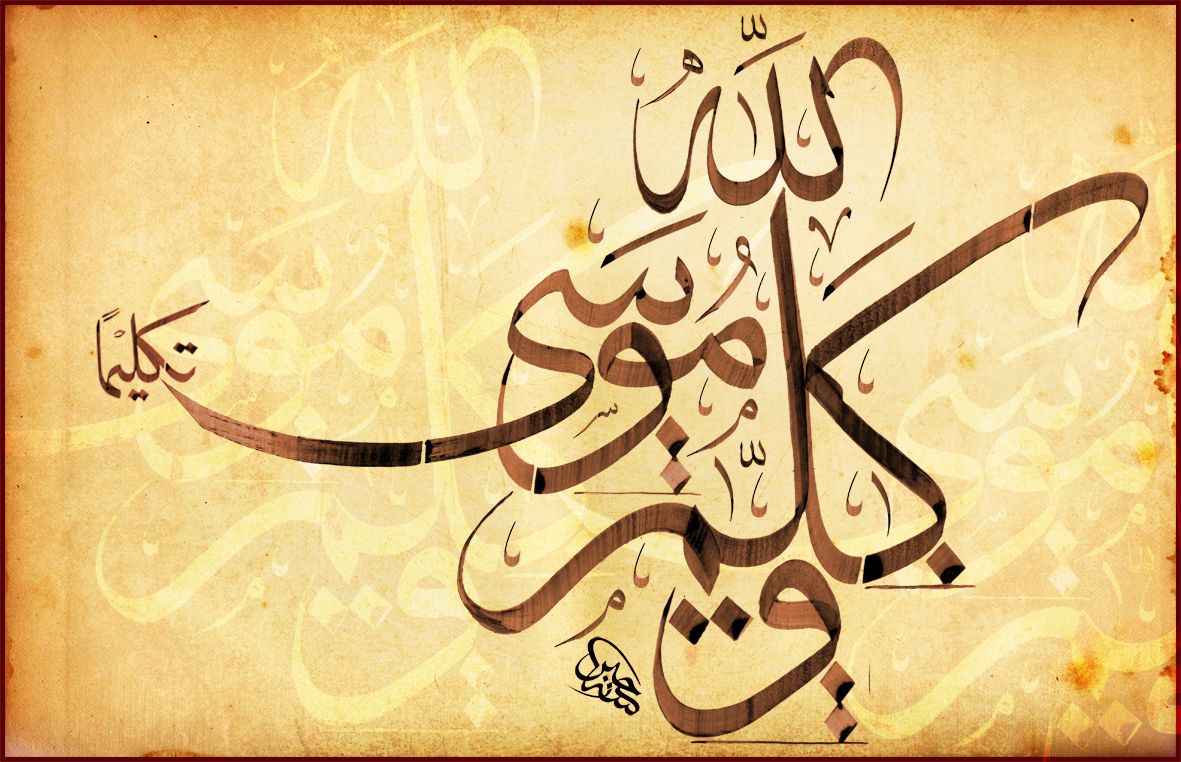 وَكَلَّمَ اللّٰهُ مُوسَى تكليْمًا